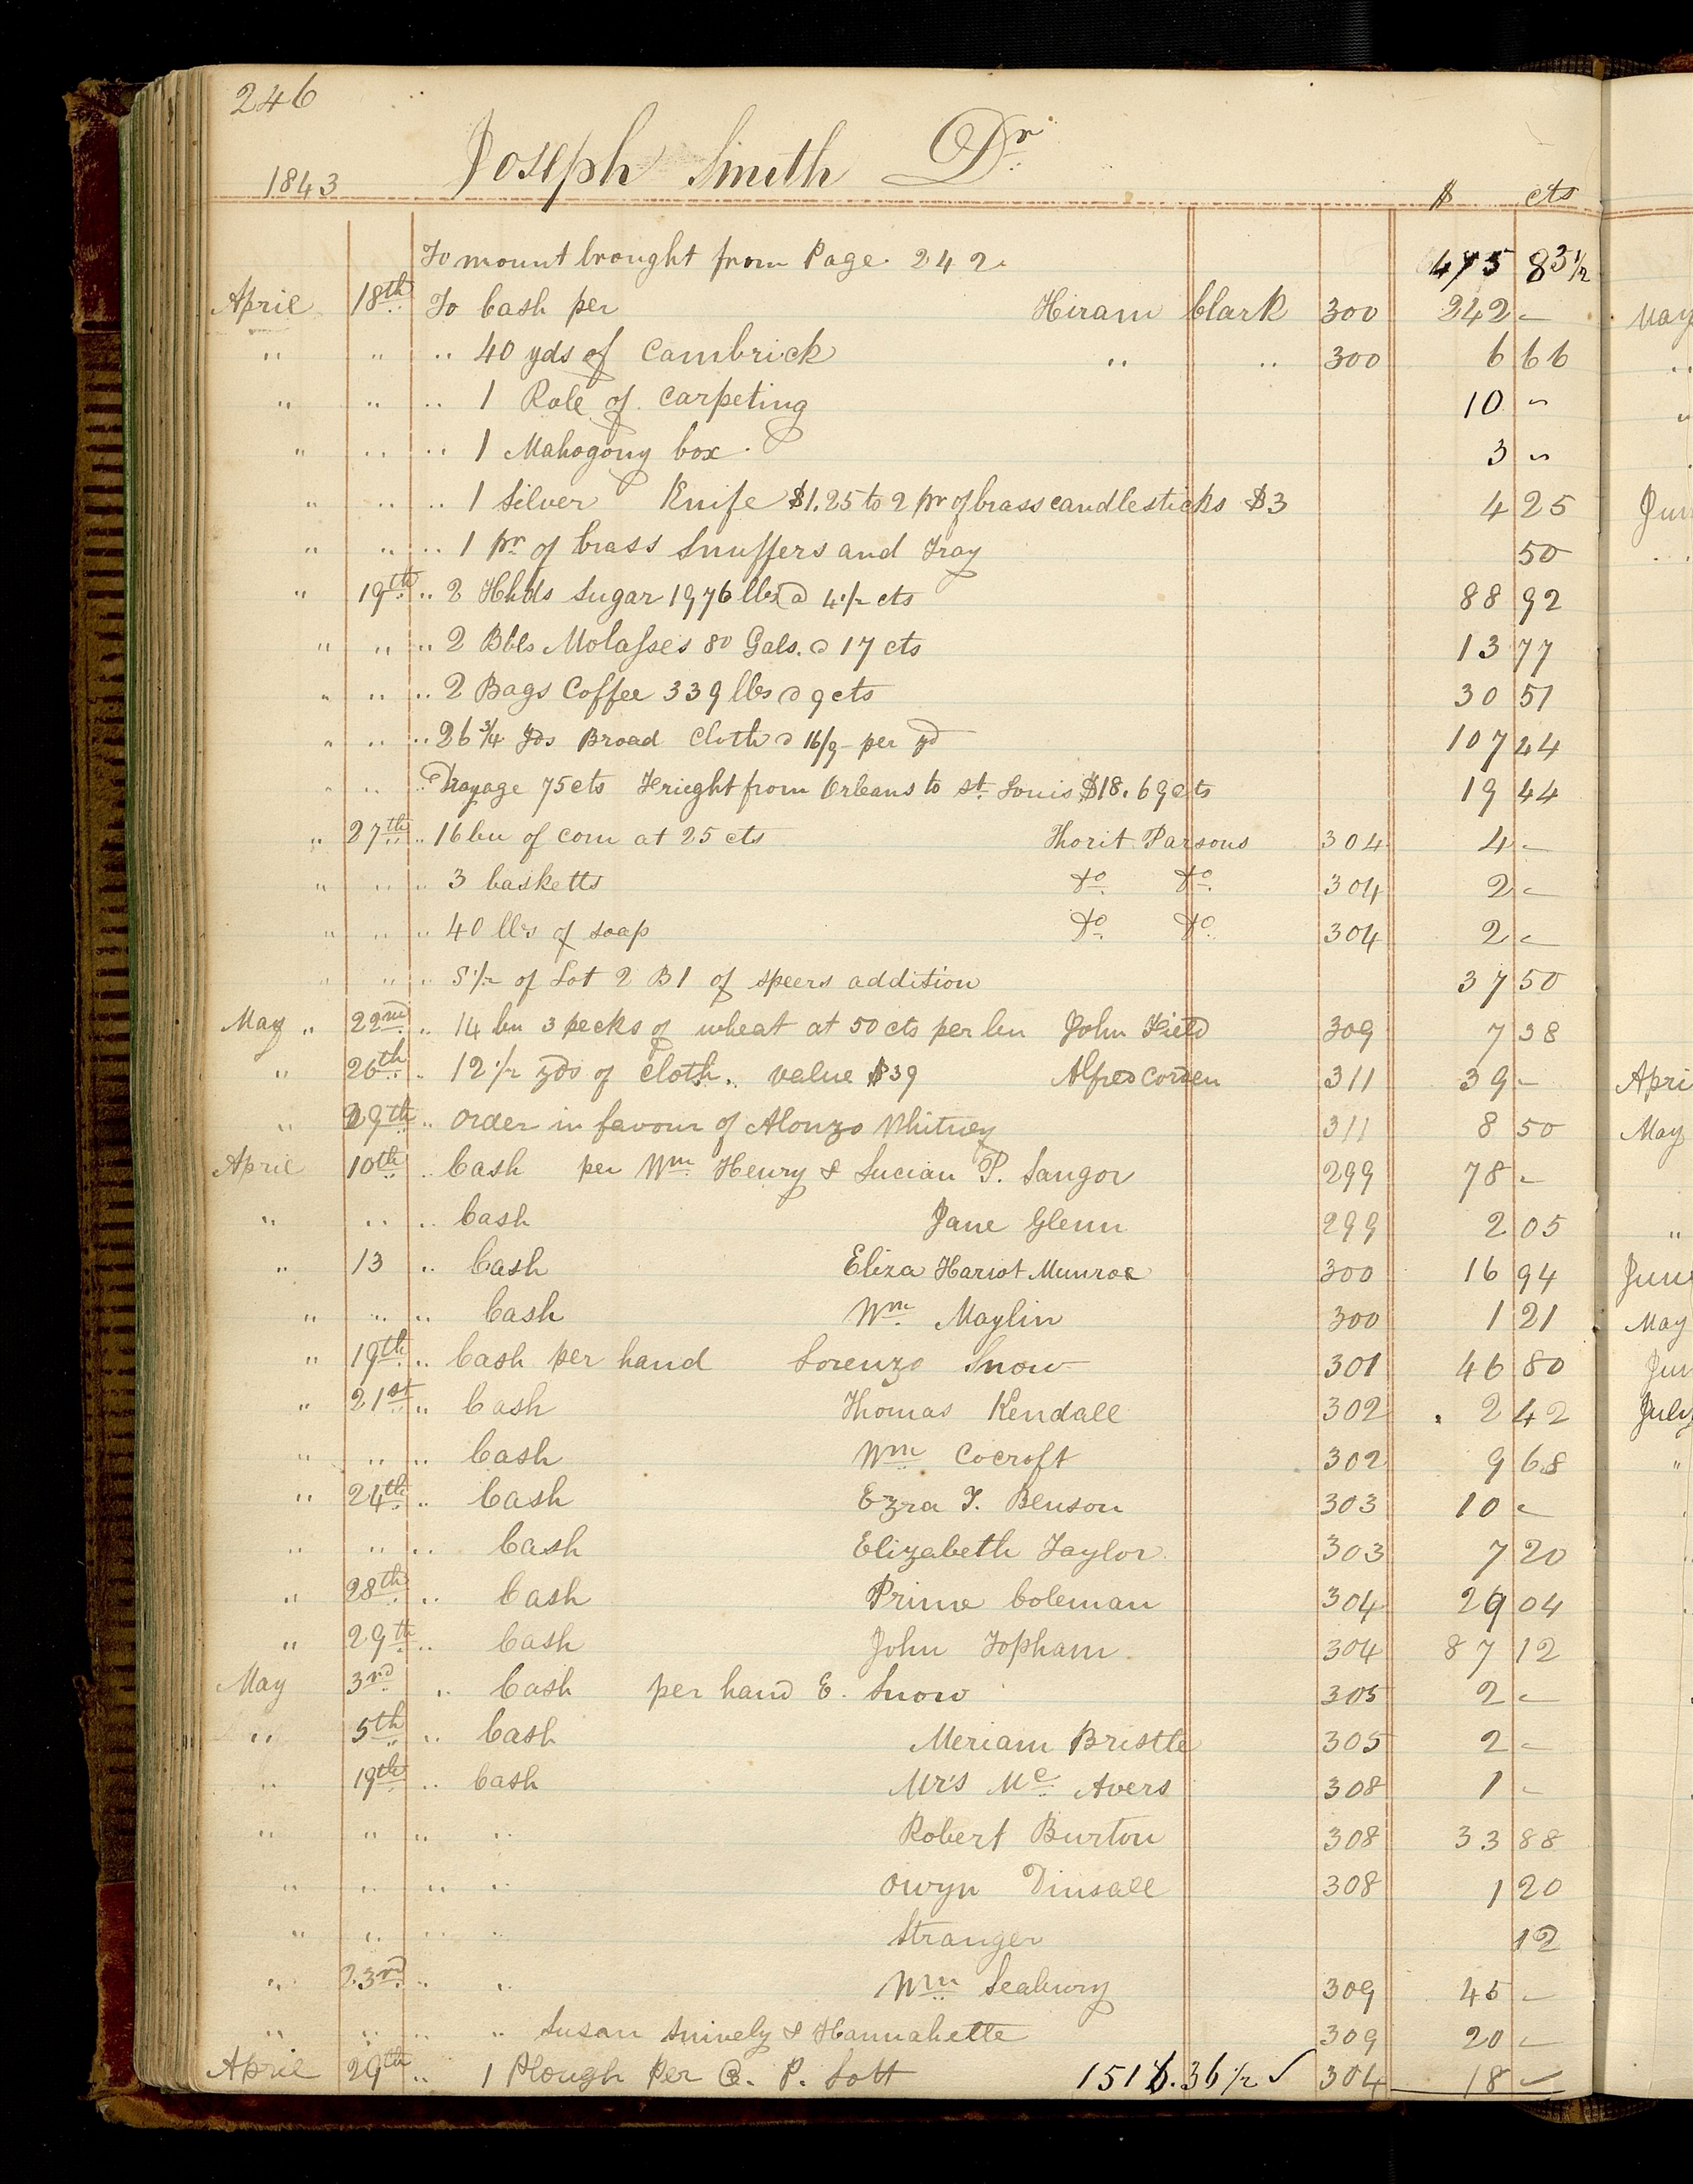 246
Joseph Smith Dr
1843 $ cts
To mount brought from Page. 242. 475 83 1/2
April 18th To Cash per Hiram Clark 300 242 -
" " " 40 yds of Cambrick " " 300 6 66
" " " 1 Role of Carpeting 10 "
" " " 1 Mahogony box. 3 "
" " " 1 Silver Knife $1.25 to 2 pr of brass candlesticks $3 4 25
" " " 1 pr of brass Snuffers and Tray 50
" 19th " 2 Hhds Sugar 1976 lbs @ 4 1/2 cts 88 92
" " " 2 Bbls Molasses 80 Gals. @ 17 cts 13 77
" " " 2 Bags Coffee 339 lbs @ 9 cts 30 51
" " " 26 3/4 Yds Broad Cloth @ 16/9 per yd 107 44
" " " Drayage 75 cts Frieght from Orleans to St. Louis $18.69 cts 19 44
" 27th " 16 bu of corn at 25 cts Thorit Parsons 304 4 -
" " " 3 basketts do do 304 2 -
" " " 40 lbs of soap do do 304 2 -
" " " S 1/2 of Lot 2 B 1 of Speers addition 37 50
May " 22nd " 14 bu 3 pecks of wheat at 50 cts per bu John Field 309 7 38
" 26th " 12 1/2 yds of Cloth " value $39 Alfred Corden 311 39 -
" 29th " Order in favour of Alonzo Whitney 311 8 50
April 10th " Cash per Wm Henry & Lucian P. Sangor 299 78 -
" " " Cash Jane Glenn 299 2 05
" 13 " Cash Eliza Hariot Munroe 300 16 94
" " " Cash Wm Maylin 300 1 21
" 19th " Cash per hand Lorenzo Snow 301 46 80
" 21st " Cash Thomas Kendall 302 2 42
" " " Cash Wm Cocroft 302 9 68
" 24th " Cash Ezra T. Benson 303 10 -
" " " Cash Elizabeth Taylor 303 7 20
" 28th " Cash Prime Coleman 304 29 04
" 29th " Cash John Topham 304 87 12
May 3rd " Cash per hand E. Snow 305 2 -
" 5th " Cash Meriam Bristle 305 2 -
" 19th " Cash Mrs Mc Avers 308 1 -
" " " " Robert Burton 308 33 88
" " " " Owyn Tinsall 308 1 20
" " " " Stranger 12
" 23rd " " Wm Seabury 309 45 -
" " " " Susan Snively & Hannahette 309 20 -
April 29th " 1 Plough Per C. P. Lott 1516.36 1/2 ✓ 304 18 -
May
April
May
"
May
July
"